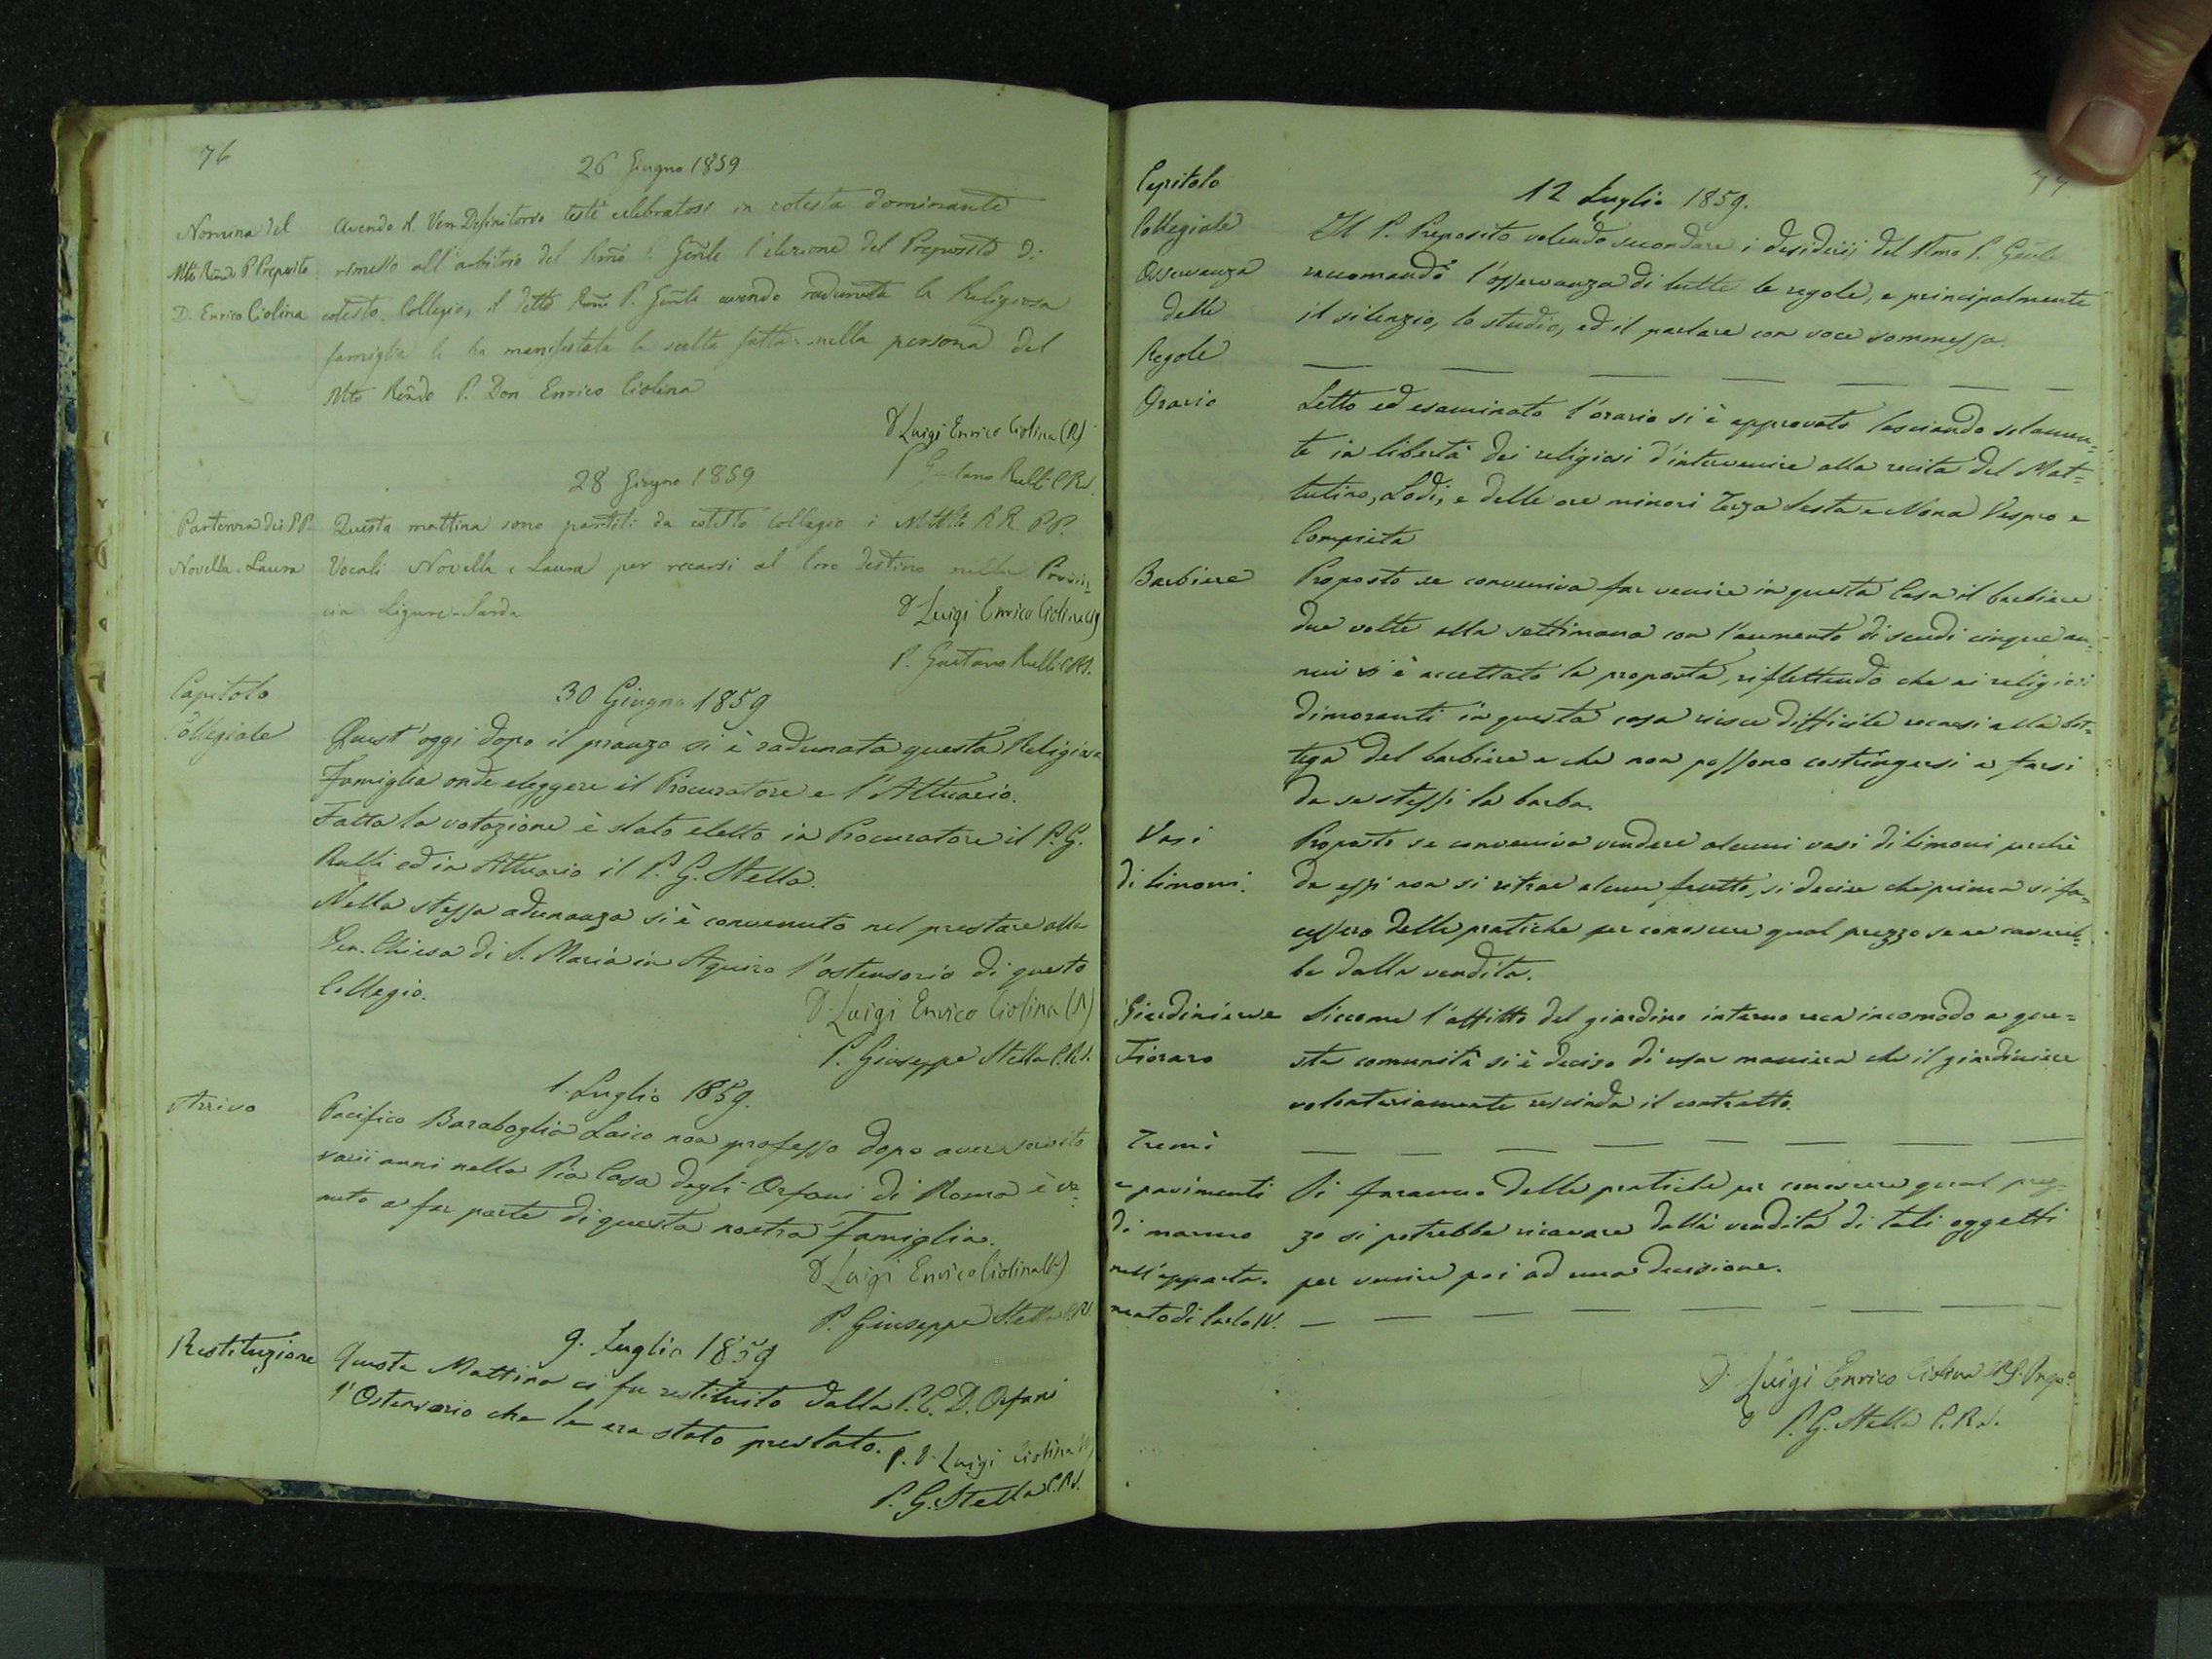 76
26 Giugno 1859
Nomina del
Mto Rñdo P. Preposito
D. Enrico Ciolina
Avendo il Ven. Definitorio testè celebratosi in cotesta dominante
rimesso all'arbitrio del Rmo P. Gñle l'elezione del Preposito di
cotesto Collegio, il detto Rmo P. Gñle avendo radunata la Religiosa
famiglia le ha manifestata la scelta fatta nella persona del
Mto Rñdo P. Don Enrico Ciolina
D Luigi Enrico Ciolina
P Gaetano Rulli C.R.S.
28 Giugno 1859
Partenza dei PP.
Novella e Laura
Questa mattina sono partiti da cotesto Collegio i RR. PP.
Vocali Novella e Laura per recarsi al loro destino nella Provin-
cia Ligure-Sarda
D Luigi Enrico Ciolina
P. Gaetano Rulli CRS.
Capitolo
Collegiale
30 Giugno 1859
Quest'oggi dopo il pranzo si è radunata questa Religiosa
Famiglia onde eleggere il Procuratore e l'Attuario.
Fatta la votazione è stato eletto in Procuratore il P. G.
Rulli ed in Attuario il P. G. Stella.
Nella stessa adunanza si è convenuto nel prestare alla
Ven. Chiesa di S. Maria in Aquiro l'ostensorio di questo
Collegio.
D. Luigi Enrico Ciolina
P. Giuseppe Stella C.R.S.
1. Luglio 1859.
Arrivo
Pacifico Baraboglia Laico non professo dopo aver servito
varii anni nella Pia Casa degli Orfani di Roma è ve-
nuto a far parte di questa nostra Famiglia.
D Luigi Enrico Ciolina
P. Giuseppe Stella C.R.S.
9. Luglio 1859
Restituzione
Questa Mattina ci fu restituito dalla P. C. D. Orfani
l'Ostensorio che le era stato prestato.
P. D. Luigi Ciolina
P. G. Stella C.R.S.
77
Capitolo
Collegiale
12 Luglio 1859.
Osservanza
delle
Regole
Il P. Preposito volendo secondare i desiderij del Rmo P. Gñle
raccomandò l'osservanza di tutte le regole, e principalmente
il silenzio, lo studio, ed il parlare con voce sommessa.
Orario
Letto ed esaminato l'orario si è approvato lasciando solamen=
te in libertà dei religiosi d'intervenire alla recita del Mat=
tutino, Lodi, e delle ore minori Terza Sesta e Nona Vespro e
Compieta
Barbiere
Proposto se conveniva far venire in questa Casa il barbiere
due volte alla settimana con l'aumento di scudi cinque an-
nui si è accettato la proposta, riflettendo che ai religiosi
dimoranti in questa casa riesce difficile recarsi alla bot-
tega del barbiere e che non possono costringersi a farsi
da se stessi la barba.
Vasi
di limoni.
Proposto se conveniva vendere alcuni vasi di limoni perchè
da essi non si ritrae alcun frutto, si decise che prima si fa-
cessero delle pratiche per conoscere qual prezzo se ne caverib-
be dalla vendita.
Giardiniere
Fioraro
Siccome l'affitto del giardino interno reca incomodo a que=
sta comunità si è deciso di usar maniera che il giardiniere
volontariamente rescinda il contratto.
Tremò
e pavimenti
di marmo
nell'apparta-
mento di Carlo IV.
Si faranno delle pratiche per conoscere qual prez-
zo si potrebbe ricavare dalla vendita di tali oggetti
per venire poi ad una decisione.
D. Luigi Enrico Ciolina
P. G. Stella C.R.S.